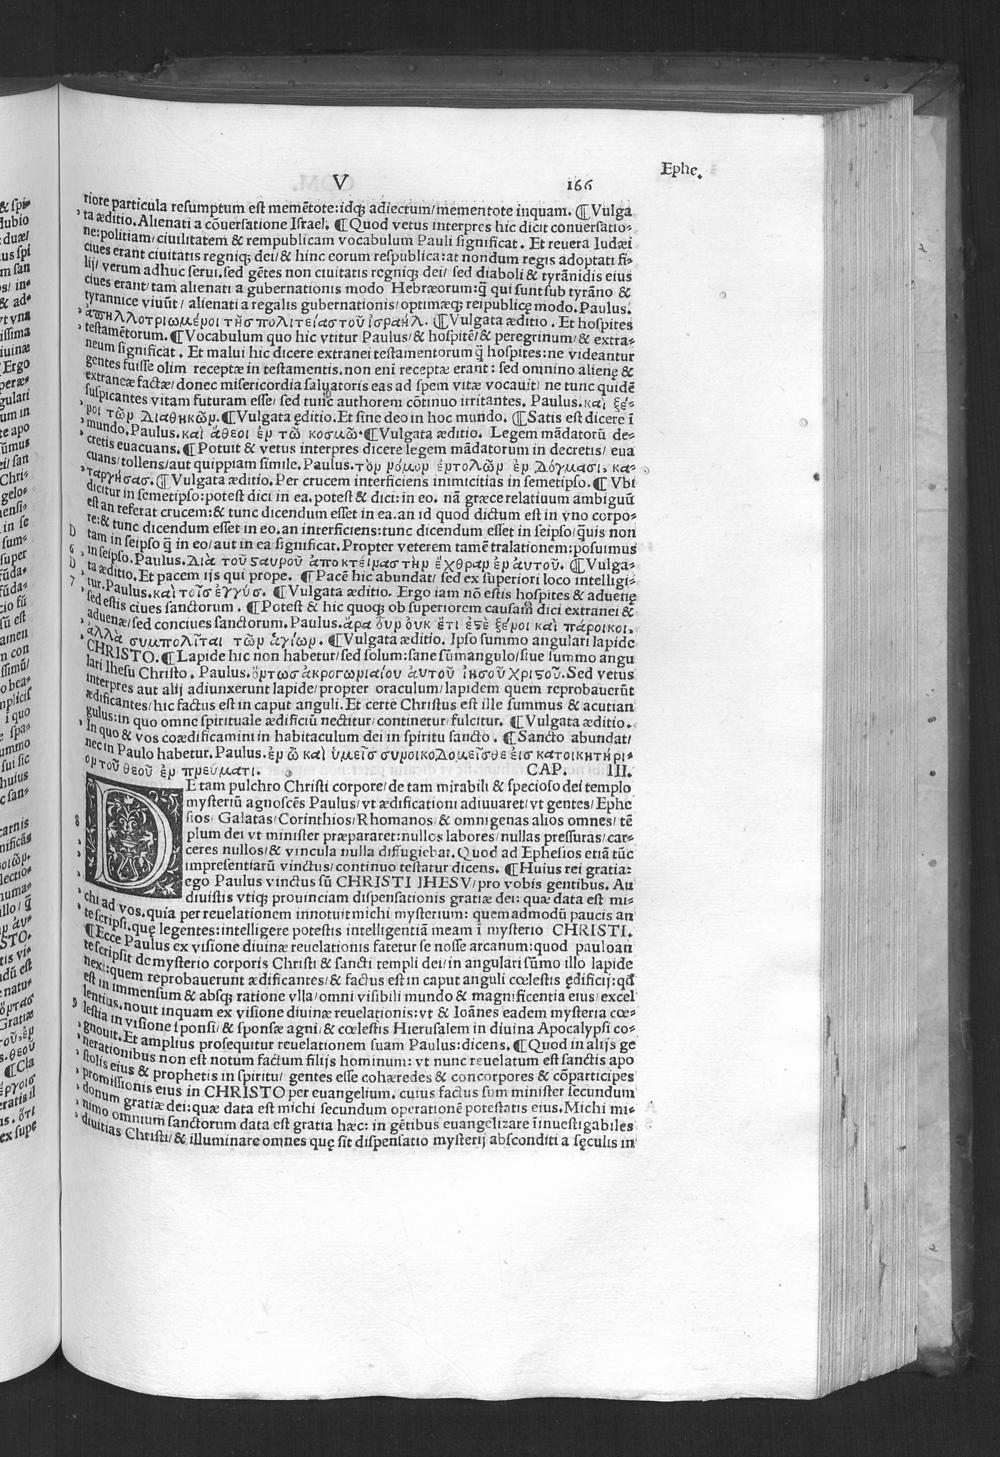 Ephe.
V 166
riore particula resumptum est memētote: idq; adiectum/mementote inquam. ¶ Vulga
ta æditio. Alienati a cōuersatione Israel. ¶ Quod vetus interpres hic dicit conuersatio-
ne: politiam/ciuilitatem & rempublicam vocabulum Pauli significat. Et reuera Iudæi
ciues erant ciuitatis regniq; dei/& hinc eorum respublica: at nondum regis adoptati fi-
lij/verum adhuc serui, sed gētes non ciuitatis regniq; dei/sed diaboli & tyrānidis eius
ciues erant/tam alienati a gubernationis modo Hebræorum: q̄ qui sunt sub tyrāno &
tyrannice viuūt/alienati a regalis gubernationis/optimæq; reipublicę modo. Paulus.
ἀπηλλοτριωμένοι τῆς πολιτείας τοῦ ἰσραήλ. ¶ Vulgata æditio. Et hospites
testamētorum. ¶ Vocabulum quo hic vtitur Paulus/& hospitē/& peregrinum/& extra-
neum significat. Et malui hic dicere extranei testamentorum q̄ hospites: ne videantur
gentes fuisse olim receptæ in testamentis. non eni receptæ erant: sed omnino alienę &
extraneæ factæ/donec misericordia saluatoris eas ad spem vitæ vocauit/ne tunc quidē
suspicantes vitam futuram esse/sed tunc authorem cōtinuo irritantes. Paulus. καὶ ξέ-
νοι τῶν διαθηκῶν. ¶ Vulgata ęditio. Et sine deo in hoc mundo. ¶ Satis est dicere ī
mundo. Paulus. καὶ ἄθεοι ἐν τῷ κοσμῷ. ¶ Vulgata æditio. Legem mādatorū de-
cretis euacuans. ¶ Potuit & vetus interpres dicere legem mādatorum in decretis/eua
cuans/tollens/aut quippiam simile. Paulus. τὸν νόμον ἐντολῶν ἐν δόγμασι. κα-
ταργήσας. ¶ Vulgata æditio. Per crucem interficiens inimicitias in semetipso. ¶ Vbi
dicitur in semetipso: potest dici in ea. potest & dici: in eo. nā græce relatiuum ambiguū
est an referat crucem: & tunc dicendum esset in ea. an id quod dictum est in vno corpo-
re: & tunc dicendum esset in eo. an interficiens: tunc dicendum esset in seipso/q̄uis non
tam in seipso q̄ in eo/aut in ea significat. Propter veterem tamē tralationem: posuimus
in seipso. Paulus. διὰ τοῦ σαυροῦ ἀποκτείνας τὴν ἔχθραν ἐν αυτοῦ. ¶ Vulga-
ta æditio. Et pacem ijs qui prope. ¶ Pacē hic abundat/sed ex superiori loco intelligi-
tur. Paulus. καὶ τοῖς ἐγγύς. ¶ Vulgata æditio. Ergo iam nō estis hospites & aduenę
sed estis ciues sanctorum. ¶ Potest & hic quoq; ob superiorem causam dici extranei &
aduenæ/sed conciues sanctorum. Paulus. ἄρα οὖν οὐκ ἔτι ἐςὲ ξένοι καὶ πάροικοι.
ἀλλὰ συμπολῖται τῶν ἁγίων. ¶ Vulgata æditio. Ipso summo angulari lapide
CHRISTO. ¶ Lapide hic non habetur/sed solum: sane sūmangulo/siue summo angu
lari Ihesu Christo. Paulus. ὄντως ἀκρογωνιαίου ἀυτοῦ ἰησοῦ χριςοῦ. Sed vetus
interpres aut alij adiunxerunt lapide/propter oraculum/lapidem quem reprobauerūt
ædificantes/hic factus est in caput anguli. Et certe Christus est ille summus & acutian
gulus: in quo omne spirituale ædificiū nectitur/continetur/fulcitur. ¶ Vulgata æditio.
In quo & vos coædificamini in habitaculum dei in spiritu sancto. ¶ Sancto abundat/
nec in Paulo habetur. Paulus. ἐν ᾧ καὶ ὑμεῖς συνοικοδομεῖσθε ἐις κατοικητήρι-
ον τοῦ θεοῦ ἐν πνεύματι. CAP. III.
DE tam pulchro Christi corpore/de tam mirabili & specioso dei templo
mysteriū agnoscēs Paulus/vt ædificationi adiuuaret/vt gentes/Ephe
sios/Galatas/Corinthios/Rhomanos/& omnigenas alios omnes/tē
plum dei vt minister præpararet: nullos labores/nullas pressuras/car-
ceres nullos/& vincula nulla diffugiebat. Quod ad Ephesios etiā tūc
impresentiarū vinctus/continuo testatur dicens. ¶ Huius rei gratia:
ego Paulus vinctus sū CHRISTI IHESV/pro vobis gentibus. Au
diuistis vtiq; prouinciam dispensationis gratiæ dei: quæ data est mi-
chi ad vos. quia per reuelationem innotuit michi mysterium: quemadmodū paucis an
te scripsi. quę legentes: intelligere potestis intelligentiā meam ī mysterio CHRISTI.
¶ Ecce Paulus ex visione diuinæ reuelationis fatetur se nosse arcanum: quod pauloan
te scripsit de mysterio corporis Christi & sancti templi dei/in angulari sūmo illo lapide
nexi: quem reprobauerunt ædificantes/& factus est in caput anguli cœlestis ędificij: qd
est in immensum & absq; ratione vlla/omni visibili mundo & magnificentia eius/excel
lentius. nouit inquam ex visione diuinæ reuelationis: vt & Ioānes eadem mysteria cœ-
lestia in visione sponsi/& sponsæ agni/& cœlestis Hierusalem in diuina Apocalypsi co-
gnouit. Et amplius prosequitur reuelationem suam Paulus: dicens. ¶ Quod in alijs ge
nerationibus non est notum factum filijs hominum: vt nunc reuelatum est sanctis apo
stolis eius & prophetis in spiritu/gentes esse cohæredes & concorpores & cōparticipes
promissionis eius in CHRISTO per euangelium. cuius factus sum minister secundum
donum gratiæ dei: quæ data est michi secundum operationē potestatis eius. Michi mi-
nimo omnium sanctorum data est gratia hæc: in gētibus euangelizare īinuestigabiles
diuitias Christi/& illuminare omnes quę sit dispensatio mysterij absconditi a sęculis in
D
6
D
7
8
9